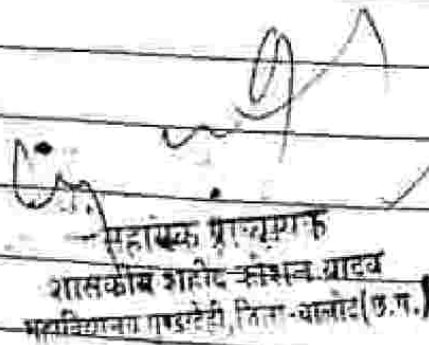 सहायक प्राध्यापक
शासकीय शहीद कौशल यादव
महाविद्यालय गुण्डरदेही, जिला-बालोद (छ.ग.)